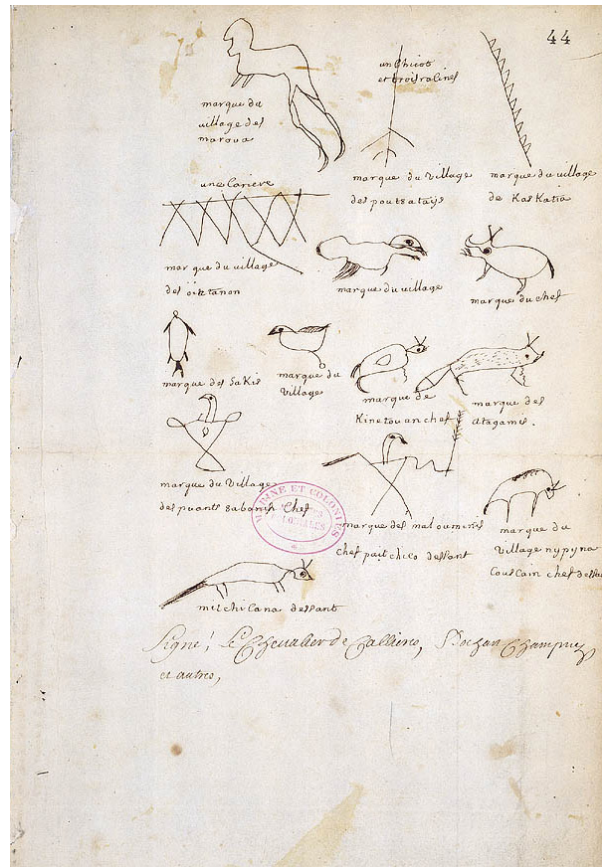 44
un Chicot
et trois racines
marque du
village des
maroua
marque du village
des poutsatays
marque du village
de KasKatia
une Cariere
marque du village
des oiktanon
marque du village
marque du chef
marque des Sakis
marque du
village
marque de
Kinetouan chef
marque des
atagamis.
marque du village
des puants Sabonis Chef
MARINE ET COLONIES
marque des maloumenis
chef paitchico dessant
marque du
village nypyna
Couscain chef
milchilana dessant
Signé, Le Chevalier de Callieres, Champigny
et autres,